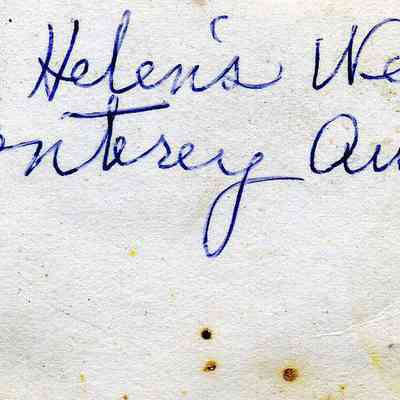 Helen's We
onterey Au